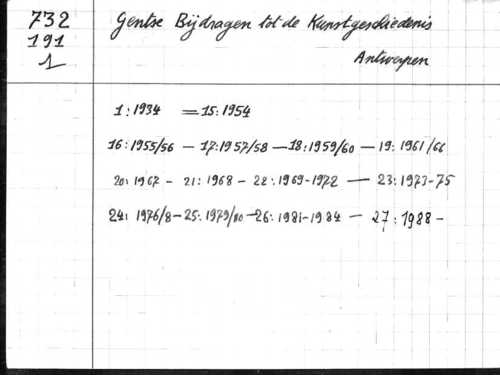 732 Gentse Bijdragen tot de Kunstgeschiedenis
191
1 Antwerpen
1:1934 = 15:1954
16:1955/56 - 17:1957/58 - 18:1959/60 - 19:1961/66
20:1967 - 21:1968 - 22:1969-1972 - 23:1973-75
24:1976/8 - 25:1979/80 - 26:1981-1984 - 27:1988 -